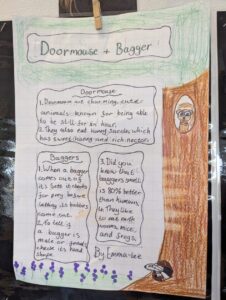 Doormouse + Bagger
Doormouse
1. Doormouse are charming, cute
animals known for being able
to be still for an hour.
2. They also eat honey suckle, which
has sweet honey and rich nectar.
Baggers
1. When a bagger
comes out of
its sett it
for any
before
letting its babies
come out.
2. To tell if
a bagger is
male or female
check its head
shape.
3. Did you
know that
baggers smell
is 80% better
than humans.
4. They like
to eat moth
worms, mice,
and frogs.
By Emma-Lee